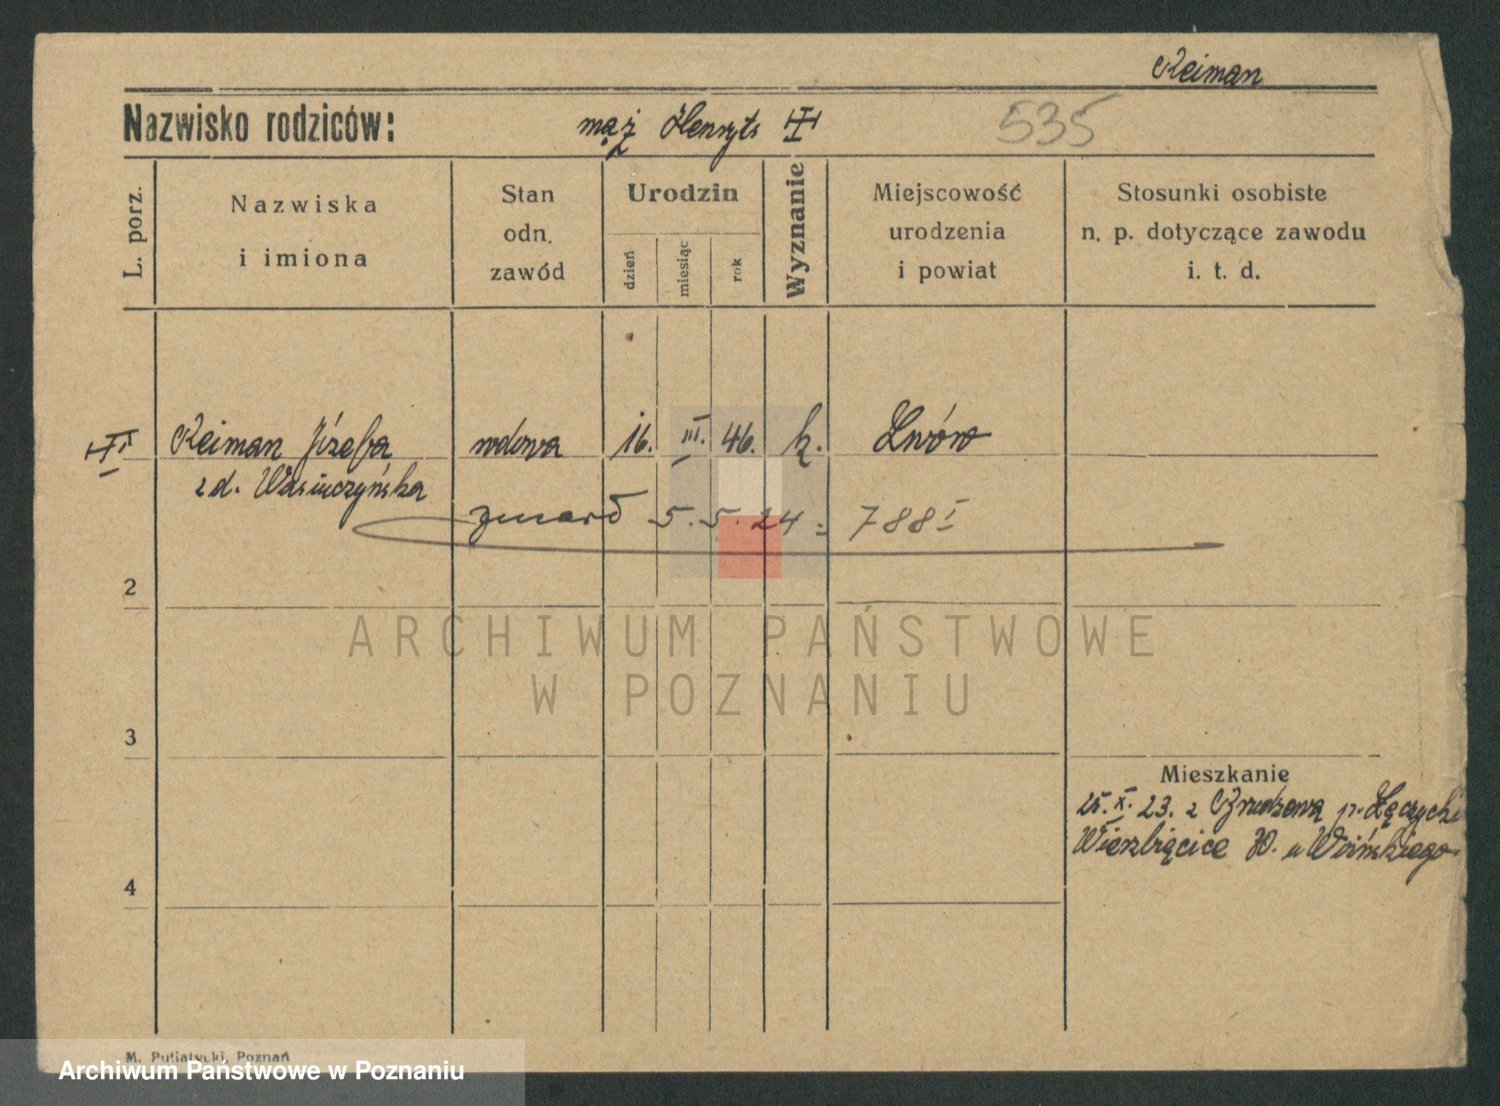 Reiman
Nazwisko rodziców: mąż Henryk
535
L. porz.
Nazwiska
i imiona
Stan
odn.
zawód
Urodzin
dzień
miesiąc
rok
Wyznanie
Miejscowość
urodzenia
i powiat
Stosunki osobiste
n. p. dotyczące zawodu
i. t. d.
Reiman Józefa wdowa 16. III. 46. k. Lwów
z d.
zmarł 5. 5. 24 = 788 I
2
ARCHIWUM PAŃSTWOWE
W POZNANIU
3
Mieszkanie
25. X. 23. z
Wierzbięcice 30. u
4
M. Putiatycki, Poznań
Archiwum Państwowe w Poznaniu